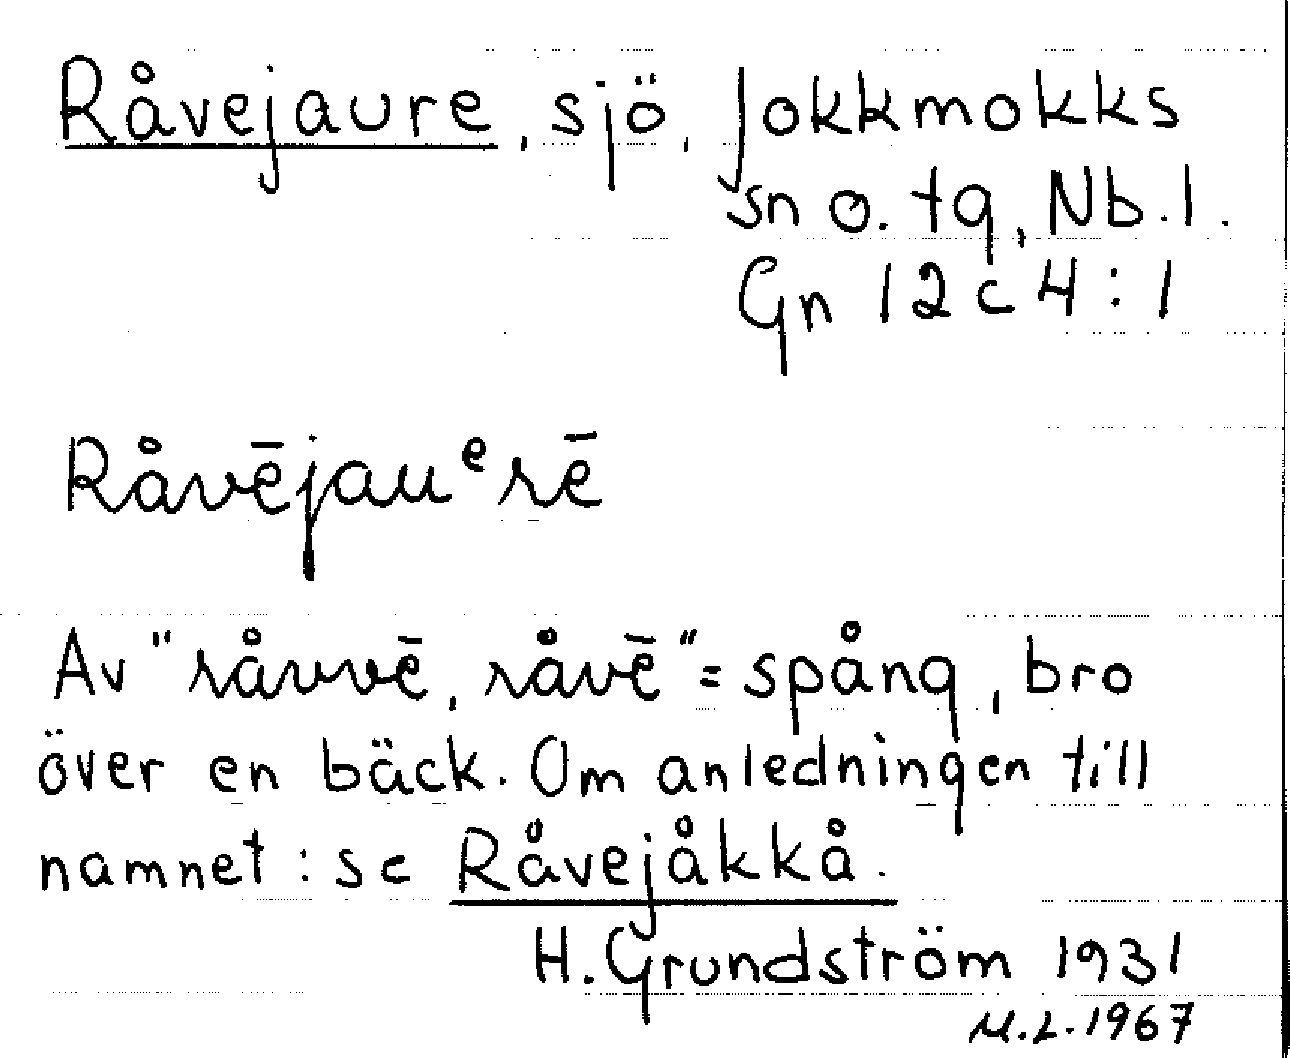 Råvejaure, sjö, Jokkmokks
sn o. tg, Nb.l.
Gn 12c4:1
Råvējauᵉrē
Av "råvvē, råvē" = spång, bro
över en bäck. Om anledningen till
namnet: se Råvejåkkå.
H. Grundström 1931
M.L. 1967